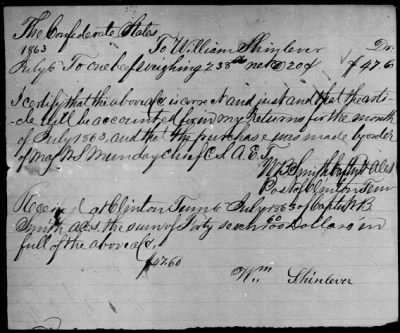 The Confederate States
1863 To William Shinlever Dr.
July 6 To one beef weighing 238 lb net @ 20¢ $47.6
I certify that the above a/c is correct and just and that the arti-
cle will be accounted for in my Returns for the month
of July 1863, and that the purchase was made by order
of Maj N S Munday Chief C. S. A. E. T.
W B Smith Capt & ACS
Post of Clinton Tenn
Received at Clinton Tenn 6 July 1863 of Capt W B
Smith acs. the sum of Forty seven 60/100 Dollars in
full of the above a/c.
$47.60
Wm Shinlever